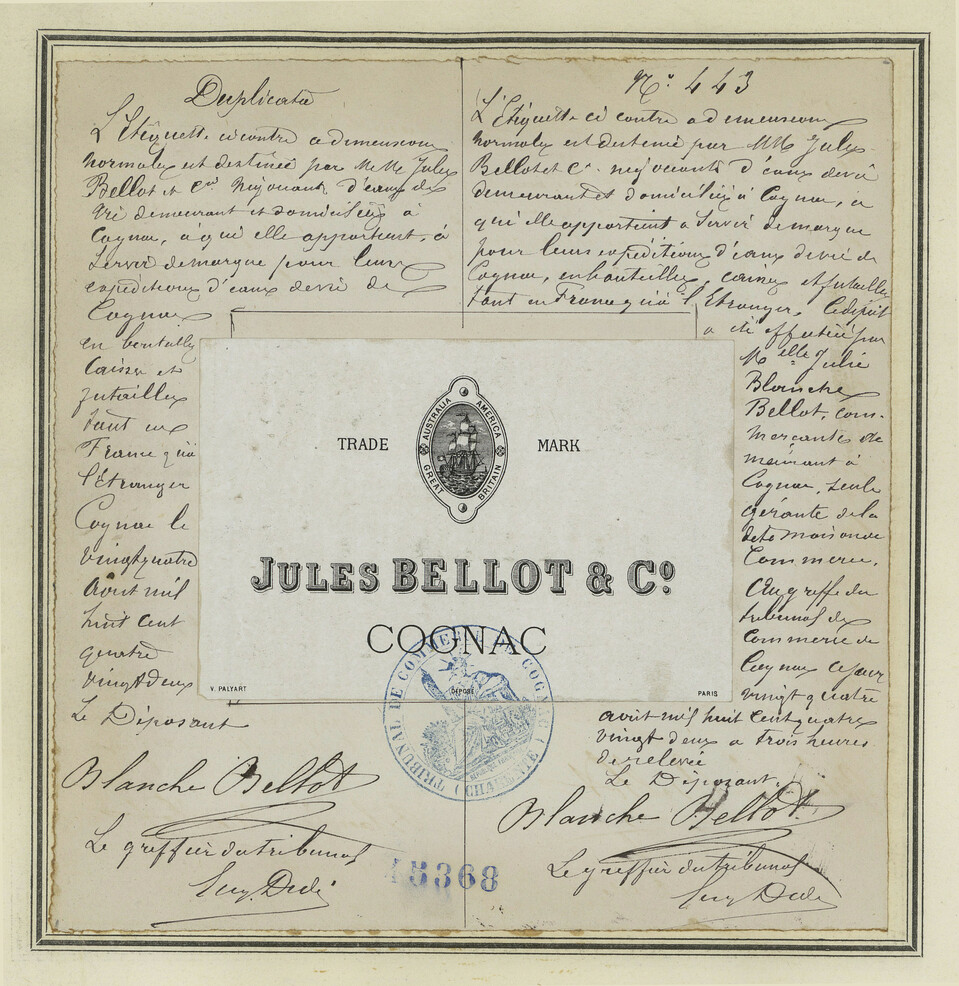 Duplicata
L'Etiquette ci contre a dimensions
normales est destinée par M M Jules
Bellot et Cie Négociants d'eaux de
vie demeurant et domiciliés à
Cognac, à qui elle appartient, à
servir de marque pour leurs
expéditions d'eaux de vie de
Cognac
en bouteilles
caisses et
futailles
tant en
France qu'à
l'Etranger
Cognac le
vingt quatre
Août mil
huit cent
quatre
vingt deux
Le Déposant
Blanche Bellot
Le greffier du tribunal
No. 443
L'Etiquette ci contre a dimensions
normales est destinée par MM Jules
Bellot et Cie négociants d'eaux de vie
demeurant et domiciliés à Cognac, a
qui elle appartient a servir de marque
pour leurs expéditions d'eaux de vie de
Cognac, en bouteilles, caisses et futailles
tant en France qu'à l'Etranger. Le dépôt
a été effectué par
Melle Julie
Blanche
Bellot, com-
merçante de
meurant à
Cognac, seule
gérante de la
dite maison de
Commerce.
Au greffe du
tribunal de
Commerce de
Cognac ce jour
vingt quatre
août mil huit cent quatre
vingt deux a trois heures
de relevée
Le Déposant.
Blanche Bellot
Le greffier du tribunal
TRADE MARK
AUSTRALIA AMERICA
GREAT BRITAIN
JULES BELLOT & Co.
COGNAC
V. PALYART
DÉPOSÉ
PARIS
TRIBUNAL DE COMMERCE DE COGNAC
(CHARENTE)
15368